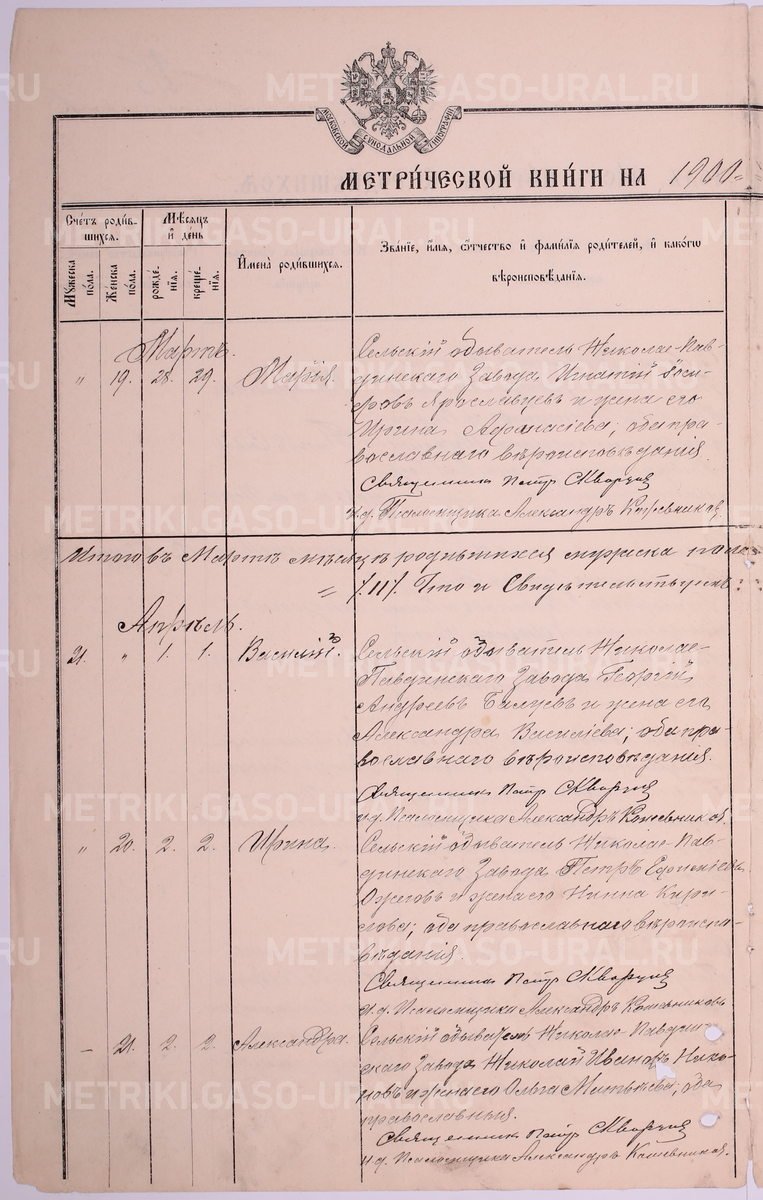 METRIKI.GASO-URAL.RU
МОСКОВСКОЙ СѴНОДАЛЬНОЙ ТИПОГРАФІИ
МЕТРИ́ЧЕСКОЙ КНИ́ГИ НА 1900
Сче́тъ роди́в-
шихсѧ.
Мѣ́сѧцъ
и҆ де́нь
И҆мена̀ роди́вшихсѧ.
Зва́нїе, и҆́мѧ, ѻ҆́тчество и҆ фами́лїѧ роди́телей, и҆ како́гѡ
вѣроисповѣ́данїѧ.
Мꙋ́жеска по́ла.
Же́нска по́ла.
рожде́-
нїѧ.
креще́-
нїѧ.
Мартъ.
" 19. 28. 29. Марія.
Сельскій обыватель Николае-Пав-
динскаго Завода Игнатій Іоси-
фовъ Ярославцевъ и жена его
Ирина Афанасіева; оба пра-
вославнаго вѣроисповѣданія.
Священникъ Петръ Скворцовъ
И. д. Псаломщика Александръ Кожевниковъ
Итого въ Мартѣ мѣсяцѣ родившихся мужска пола
/11/. Что и Свидѣтельствуемъ
Апрѣль.
21. " 1. 1. Василій.
Сельскій обыватель Николае-
Павдинскаго Завода Георгій
Андреевъ и жена его
Александра Василіева; оба пра-
вославнаго вѣроисповѣданія.
Священникъ Петръ Скворцовъ
И. д. Псаломщика Александръ Кожевниковъ.
" 20. 2. 2. Ирина.
Сельскій обыватель Николае-Пав-
динскаго Завода Петръ
Ожеговъ и жена его Нинна Кири-
лова; оба православнаго вѣроиспо-
вѣданія.
Священникъ Петръ Скворцовъ
И. д. Псаломщика Александръ Кожевниковъ.
— 21. 2. 2. Александра.
Сельскій обыватель Николае-Павдин-
скаго Завода Николай Ивановъ Нико-
новъ и жена его Ольга; оба
православныя.
Священникъ Петръ Скворцовъ
И. д. Псаломщика Александръ Кожевниковъ.